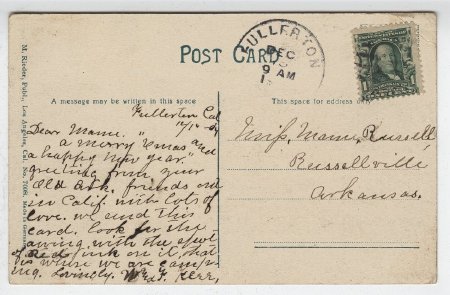 POST CARD
FULLERTON
DEC
9 AM
A message may be written in this space
This space for address
M. Rieder, Publ., Los Angeles, Cal. No. 7098. Made in Germany
Fullerton Cal
Dear Mame. "
a merry Xmas and
a happy New year."
greeting from your
Old Ark. friends out
in Calif. with lots of
love. we send this
card. look for the
awning with the spot
of Red ink on it, that
is where we are camp-
ing. Lovingly.
Kerr,
Miss, Mame, Russell
Russellville
Arkansas.
1